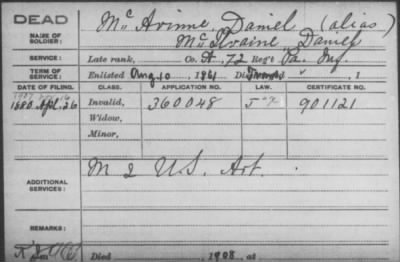 DEAD
Mc Avinne Daniel (alias)
NAME OF SOLDIER: Mc Ilvaine Daniel
SERVICE: Late rank, Co. A, 72 Reg't Pa. Inf.
TERM OF SERVICE: Enlisted Aug. 10, 1861 , 1
DATE OF FILING. CLASS. APPLICATION NO. LAW. CERTIFICATE NO.
1880 Apl. 26 Invalid, 360048 901121
Widow,
Minor,
ADDITIONAL SERVICES: M 2 U.S. Art.
REMARKS:
Died , 1908, at